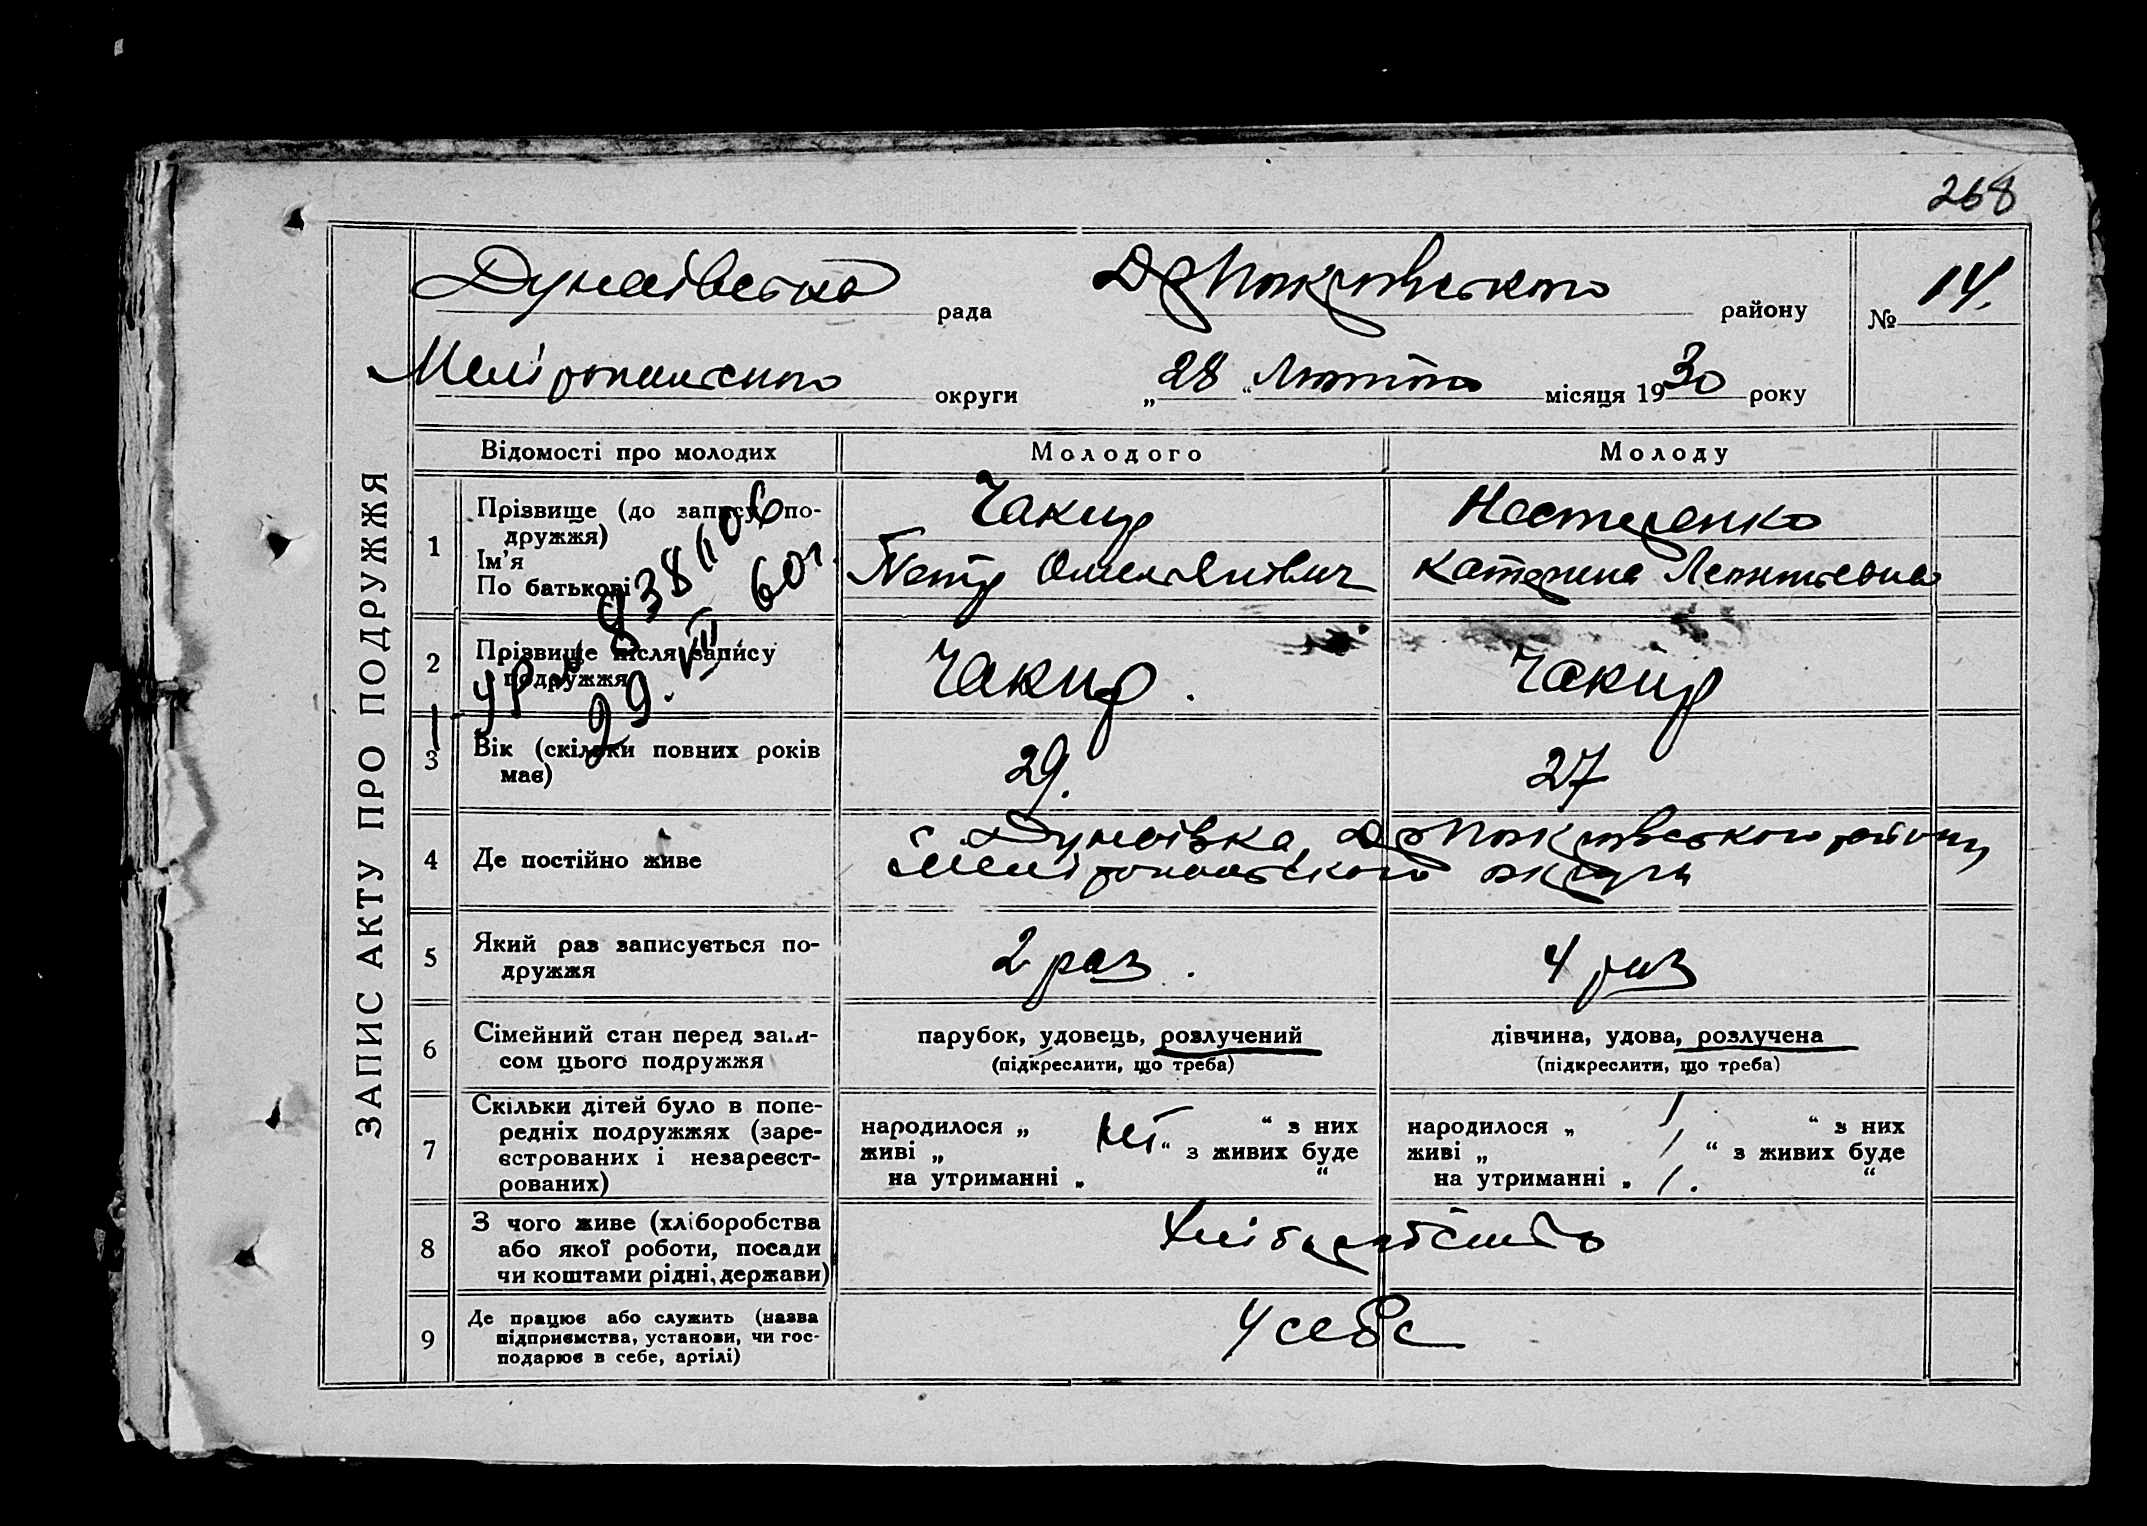 268
Дунаївська рада Др Покровського району № 14.
Мелітопольського округи „28“ Лютого місяця 1930 року
ЗАПИС АКТУ ПРО ПОДРУЖЖЯ
Відомості про молодих Молодого Молоду
1 Прізвище (до запису по-
дружжя) Чакир Нестеренко
Ім’я
По батькові Петр Омельянович Катерина Леонтьевна
838
60 г.
29. VIII
2 Прізвище після запису
подружжя Чакир. Чакир
3 Вік (скільки повних років
має) 29. 27
4 Де постійно живе с. Дунаївка, Др Покровського району
Мелітопольського округи
5 Який раз записується по-
дружжя 2 раз. 4 раз
6 Сімейний стан перед запи-
сом цього подружжя
парубок, удовець, розлучений
(підкреслити, що треба)
дівчина, удова, розлучена
(підкреслити, що треба)
7 Скільки дітей було в попе-
редніх подружжях (заре-
єстрованих і незареєст-
рованих)
народилося „ ні “ з них
живі „ “ з живих буде
на утриманні „ “
народилося „ / “ з них
живі „ / “ з живих буде
на утриманні „ /. “
8 З чого живе (хліборобства
або якої роботи, посади
чи коштами рідні, держави) Хліборобство
9 Де працює або служить (назва
підприємства, установи, чи гос-
подарює в себе, артілі) У себе